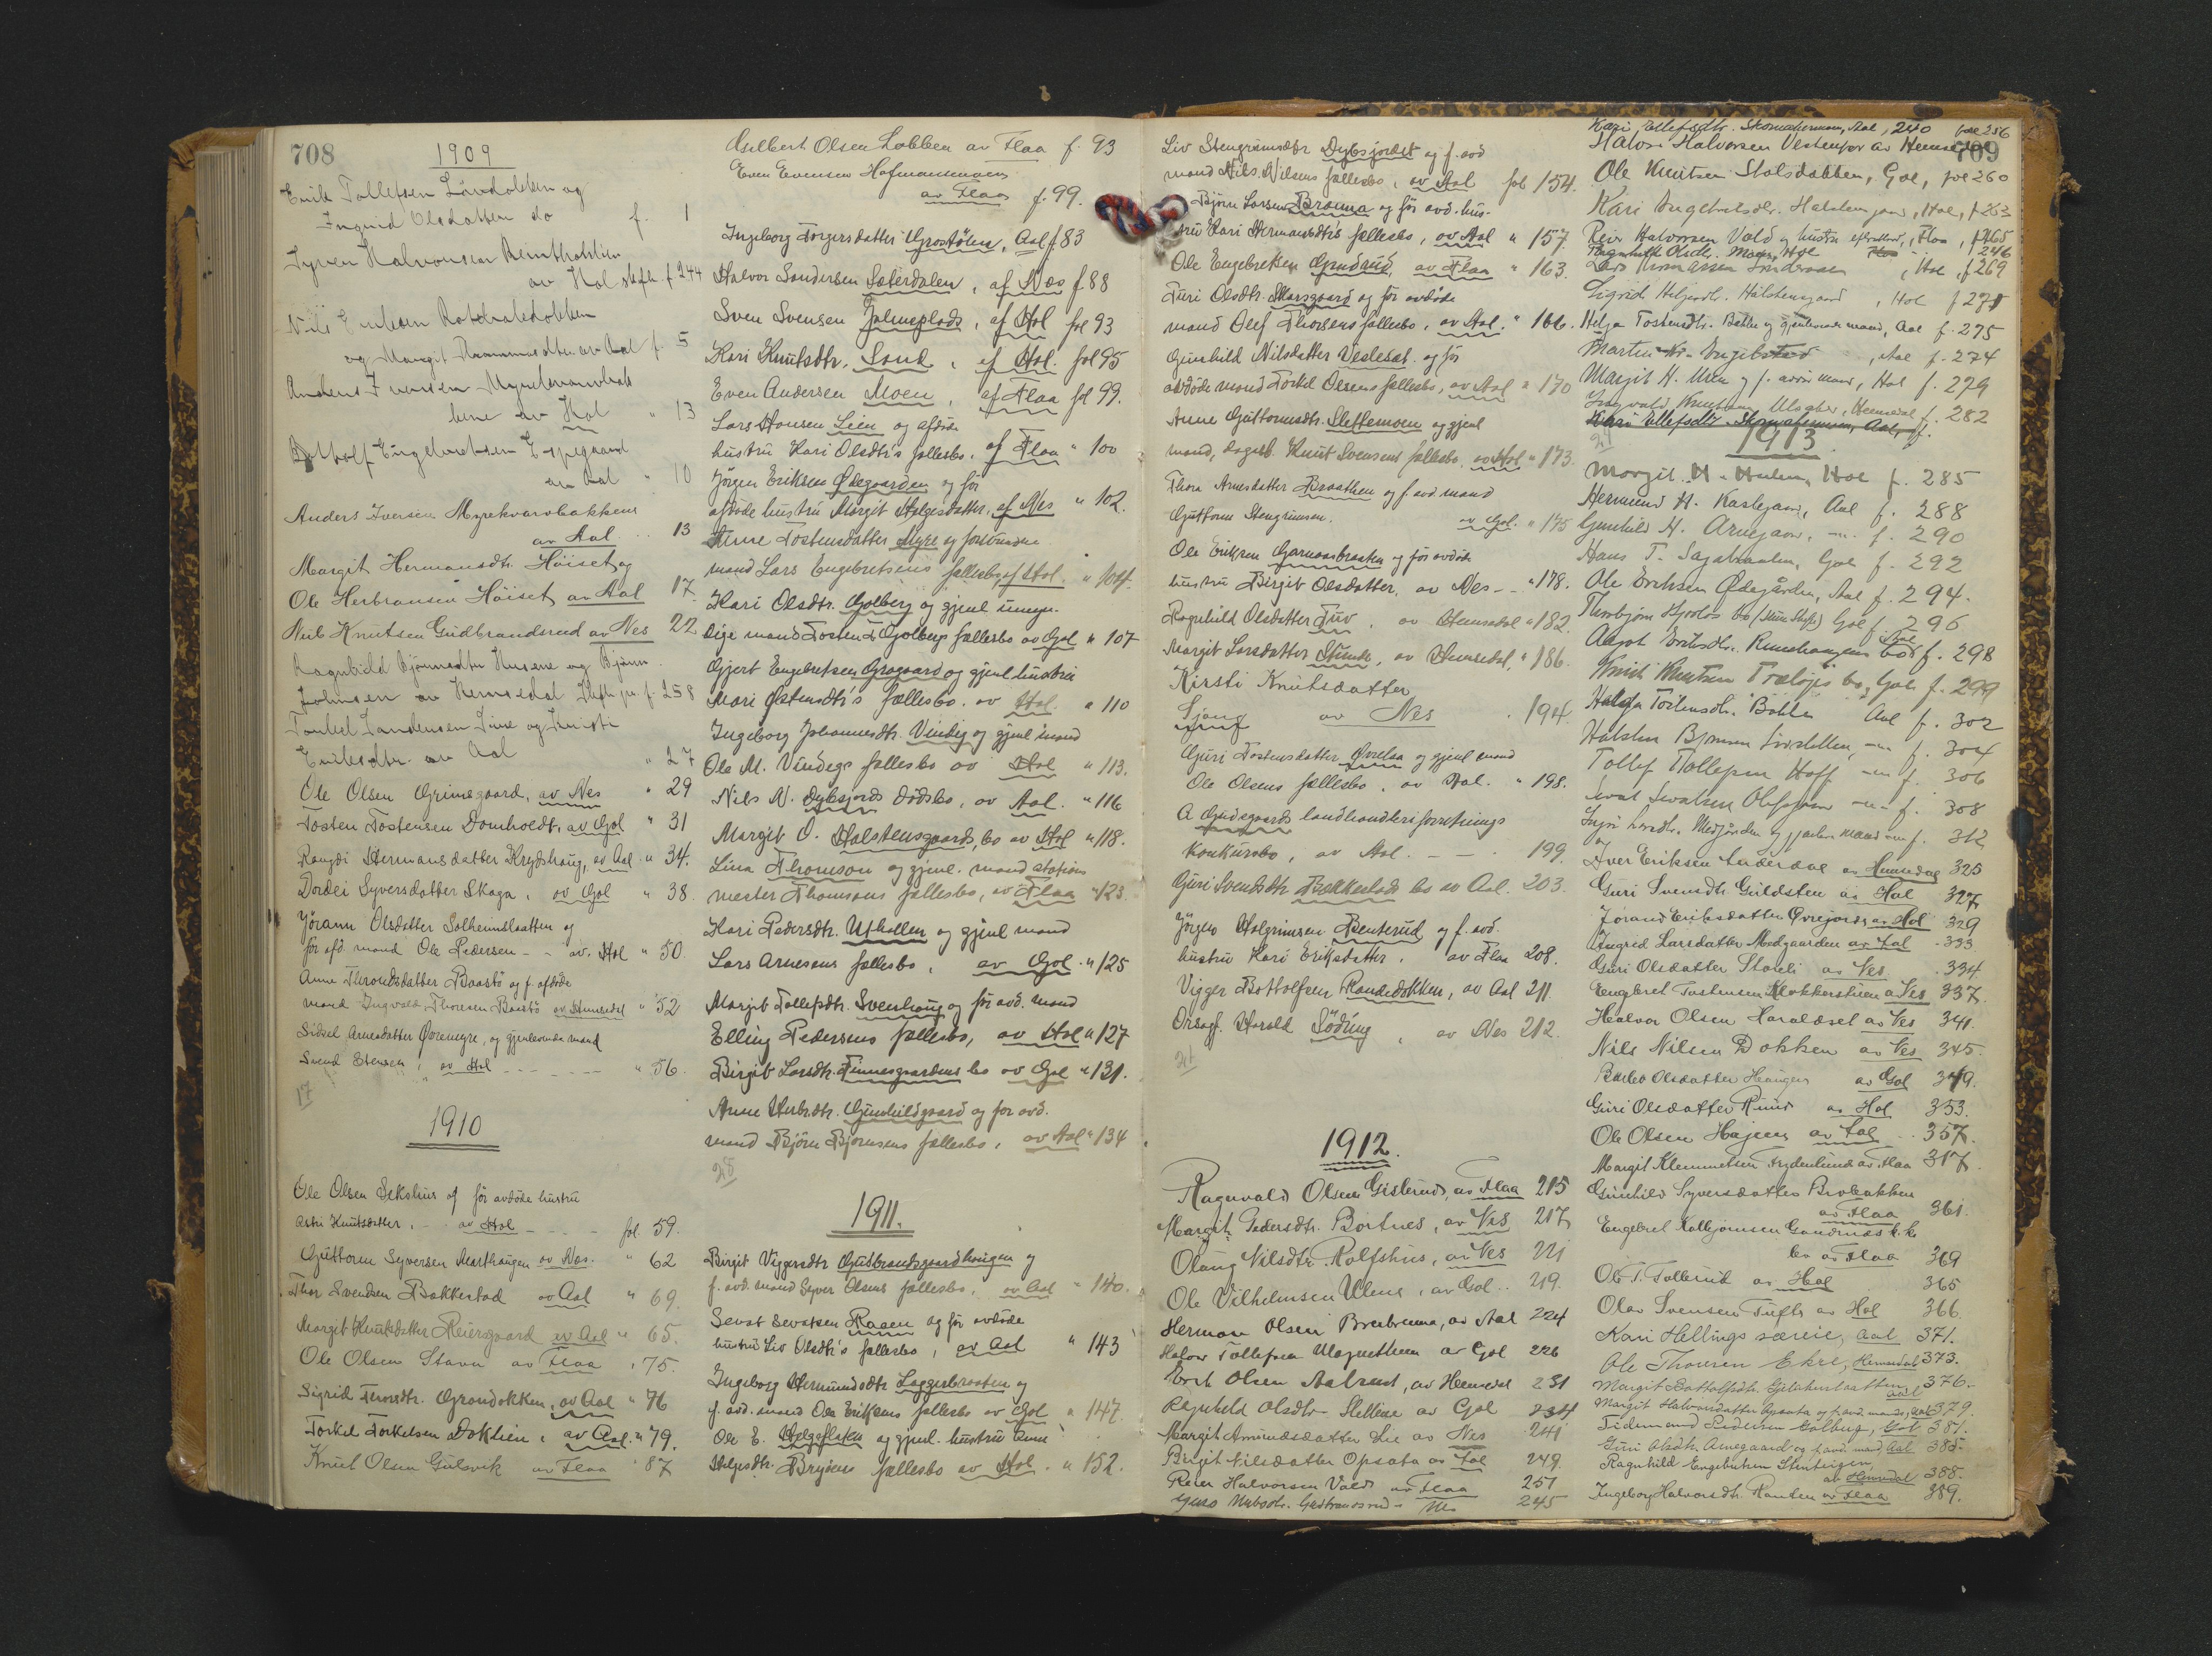 708
1909
Erik Tollefsen Lövdokken og
Ingrid Olsdatter do f. 1
Syver Halvorsen
av Hol f 244
Nils Eriksen
og Margit av Aal f. 5
Anders Iversen
av Hol " 13
Botholf Engebretsen Espegaard
av Aal " 10
Anders Iversen Myrekvarvbakkene
av Aal .. 13
Margit Hermansdtr. Höiset og
Ole Herbransen Höiset av Aal 17
Nub Knutsen Gudbrandsrud av Nes 22
Ragnhild Bjørnsdtr Husene og Bjørn
Johnsen av Hemsedal f. 258
Torkel Sandersen og Kristi
Eriksdtr. av Aal " 27
Ole Olsen Grimsgaard, av Nes " 29
Tosten Tostensen Domholdt, av Gol " 31
Rangdi Hermansdatter Krydshaug, av Aal " 34.
Dordei Syversdatter Skaga, av Gol " 38.
Jörann Olsdatter Solheimslaatten og
för afd. mand Ole Pedersen - - av. Hol " 50.
Anne Throndsdatter Baastö og f. afdöde
mand Ingvald Thoresen Baastö av Hemsedal " 52
Sidsel Arnesdatter Øvremyre, og gjenlevende mand
Svend Evensen, av Hol - - - - - " 56.
17
1910
Ole Olsen Sekshus og för avdöde hustru
Astri Knutsdatter, - av Hol - - - - fol. 59.
Guttorm Syversen Marthaugen av Nes. " 62
Thor Svendsen Bakkestad av Aal " 69.
Margit Knutsdatter Reiersgaard av Aal " 65.
Ole Olsen Stavn av Flaa " 75.
Sigrid Torsdtr. Grøndokken, av Aal " 76
Torkel Torkelsen Doklien, av Aal. " 79.
Knut Olsen Gulsvik av Flaa " 87
Aselbert Olsen Lobben av Flaa f. 93
Even Evensen
av Flaa f. 99.
Ingeborg Torgersdatter Grostölen, Aal f 83
Halvor Sandersen Sæterdalen, af Næs f 88
Sven Svensen Holmeplads, af Hol fol 93
Kari Knutsdtr. Sand, af Hol. fol 95
Even Andersen Moen, af Flaa fol 99.
Lars Hansen Lien og afdöde
hustru Kari Olsdtr's fællesbo. af Flaa " 100
Jörgen Eriksen Ødegaarden og för
afdöde hustru Margit Helgesdatter, af Nes " 102.
Anne Tostensdatter Myre og forsvundne
mand Lars Engebretsens fællesbo af Hol. " 104.
Kari Olsdtr. Golberg og gjenl. umyn-
dige mand Tosten T. Golbergs fællesbo av Gol " 107
Gjert Engebretsen Grøgaard og gjenl. hustru
Mari Østensdtr's fællesbo. av Hol. " 110
Ingeborg Johannesdtr. Vindeg og gjenl mand
Ole M. Vindegs fællesbo av Hol " 113.
Nils N. Dybsjords dödsbo, av Aal. " 116
Margit O. Halstensgaards, bo av Hol " 118.
Lina Thomson og gjenl. mand stations
mester Thomsons fællesbo, av Flaa " 123.
Kari Pedersdtr. Uthallen og gjenl mand
Lars Arnesens fællesbo, av Gol. " 125
Margit Tollefsdtr. Svenhaug og för avd. mand
Elling Pedersens fællesbo, av Hol " 127
Birgit Larsdtr. Finnesgaardens bo av Gol " 131.
Anne Herbr.dtr. Gunhildgaard og for avd.
mand Björn Björnsens fællesbo, av Aal " 134
28
1911.
Birgit Viggersdtr Gulbrandsgaardhaugen og
f. avd. mand Syver Olsens fællesbo, av Aal " 140.
Sevat Sevatsen Raaen og för avdöde
hustru Liv Olsdtr's fællesbo, av Aal " 143
Ingeborg Hermundsdtr Laggerbraaten og
f. avd. mand Ole Eriksens fællesbo av Gol " 147.
Ole E. Helgeslaten og gjenl. hustru Anne
Helgesdtr. Brydens fællesbo av Hol. " 152.
Liv Stengrimsdtr Dybsjordet og f. avd
mand Nils Nilsens fællesbo, av Aal fol 154.
Björn Larsen Bræuna og för avd. hus-
tru Kari Hermansdtr's fællesbo, av Aal " 157.
Ole Engebretsen Grudrud, av Flaa " 163.
Turi Olsdtr. Skarsgaard og för avdöde
mand Olef Thorsens fællesbo, av Aal. " 166.
Gunhild Nilsdatter Veslesæt og för
avdöde mand Torkel Olsens fællesbo, av Aal " 170
Anne Guttormsdtr. Slettemoen og gjenl
mand, dagarb. Knut Svensens fællesbo, av Hol " 173.
Thora Arnesdatter Braathen og f. avd mand
Guttorm Stengrimsen. av Gol. " 175
Ole Eriksen Garnaasbraaten og för avdöde
hustru Birgit Olsdatter, av Nes - - " 178.
Ragnhild Olsdatter Tuv, av Hemsedal " 182.
Margit Larsdatter Hunde, av Hemsedal, " 186.
Kirsti Knutsdatter
Sjong av Nes . 194.
Guri Tostensdatter Øvrelaa og gjenl mand
Ole Olsens fællesbo, av Hol. " 198.
A Gudsgaards landhandleriforretnings
konkursbo, av Aal. - - . 199.
Guri Svendsdtr Bakkestads bo av Aal. 203.
Jörgen Halgrimsen Benterud og f. avd.
hustru Kari Eriksdatter, av Flaa 208.
Vigger Botholfsen Randedokken, av Aal 211.
Orsagf. Harald Söding, av Nes 212.
24
1912.
Ragnvald Olsen Gislerud, av Flaa 215
Margit Pedersdtr. Bortnes, av Nes 217
Olaug Nilsdtr. Rolfshus, av Nes 221
Ole Vilhelmsen Ulene, av Gol .. 219.
Herman Olsen Breibrenna, av Aal 224
Halvor Tollefsen Magnetheen av Gol 226
Erik Olsen Aalrust, av Hemsedal 231
Ragnhild Olsdtr Slettene av Gol 234
Margit Amundsdatter Lie av Nes 241
Birgit Nilsdatter Opsata av Aal 249.
Reier Halvorsen Vald av Flaa 251
Guro Nubsdtr. Gudbrandsrud - Nes 245
Kari Ellefsdtr. Skomakermoen, Aal, 240 fol 256
Halvor Halvorsen Vestenfor av Hemsedal
709
Ole Knutsen Stolsdokken, Gol, fol 260
Kari Engebretsdtr. Halstensgaard, Hol, f 263
Reier Halvorsen Vald og hustru efterladt, Flaa, f 265
Ragnhild Olsdtr. Moen, Hol 246
Lars Thomassen Sundraaen, Hol, f 269
Sigrid Helgesdtr. Halstensgaard, Hol f 271
Helga Tostensdtr. Bakke og gjenlevende mand, Aal f. 275
Martin Kr. Engelstad, Aal f. 274
Margit H. Uren og f. avdøde mand, Hol f. 279
Ingvald Knutsen Ulsaker, Hemsedal f. 282
Kari Ellefsdtr Skomakermoen, Aal, f.
21
1913
Margit H. Hol f. 285
Hermund H. Karlsgaard, Aal f. 288
Gunhild H. Arnegaard, -"- f. 290
Hans T. Sagabraaten, Gol f. 292
Ole Eriksen Ødegården, Aal f. 294.
Thorbjørn Hjortøs bo (Skifte) Gol f. 296
Aagot Eriksdtr. Runehaugens bo Aal f. 298
Knut Knutsen Trøløjes bo, Gol f. 299
Helga Tostensdtr. Bakke Aal f. 302
Halsten Bjørnsen -"- f. 304
Tollef Tollefsen Hoff -"- f. 306
Sevat Sevatsen Olsgaard -"- f. 308
Medgården og gjenlev. mand -"- f. 312
Iver Eriksen av Hemsedal 325
Guri Svensdtr. Guldsten av Hol 327
Jorand Eriksdatter Øvrejorde av Hol 329
Ingrid Larsdatter Medgaarden av Aal - 333
Guri Olsdatter Støveli av Nes . 334
Engebret Tostensen Klokkerstuen av Nes 337.
Halvor Olsen Haraldset av Nes 341.
Nils Nilsen Dokken av Nes 345.
Barbro Olsdatter Haugen av Gol 349.
Guri Olsdatter Ruud av Hol 353.
Ole Olsen Hajem av Aal .. 357.
Margit Klemmetsen Frydenlund av Flaa 317.
Gunhild Syversdatter Brobakken
av Flaa 361.
Engebret Kolbjørnsen Gandrud's k. k.
bo av Flaa 369
Ole T. Tollerud av Hol 365
Olav Svensen Tufte av Hol 366.
Kari Hellings særeie, Aal 371.
Ole Thoresen Ekre, Hemsedal 373.
Margit Botolfsdtr. Gjeldhuslaatten, Aal 376.-
Margit Halvorsdatter Opsata og f. avd. mand, Aal 379.
Tidemand Pedersen Golberg, Gol 381.
Guri Olsdtr. Arnegaard og f. avd. mand Aal 385.
Ragnhild Engebretsen
av Hemsedal 388.
Ingeborg Halvorsdtr. Randen av Flaa 389.